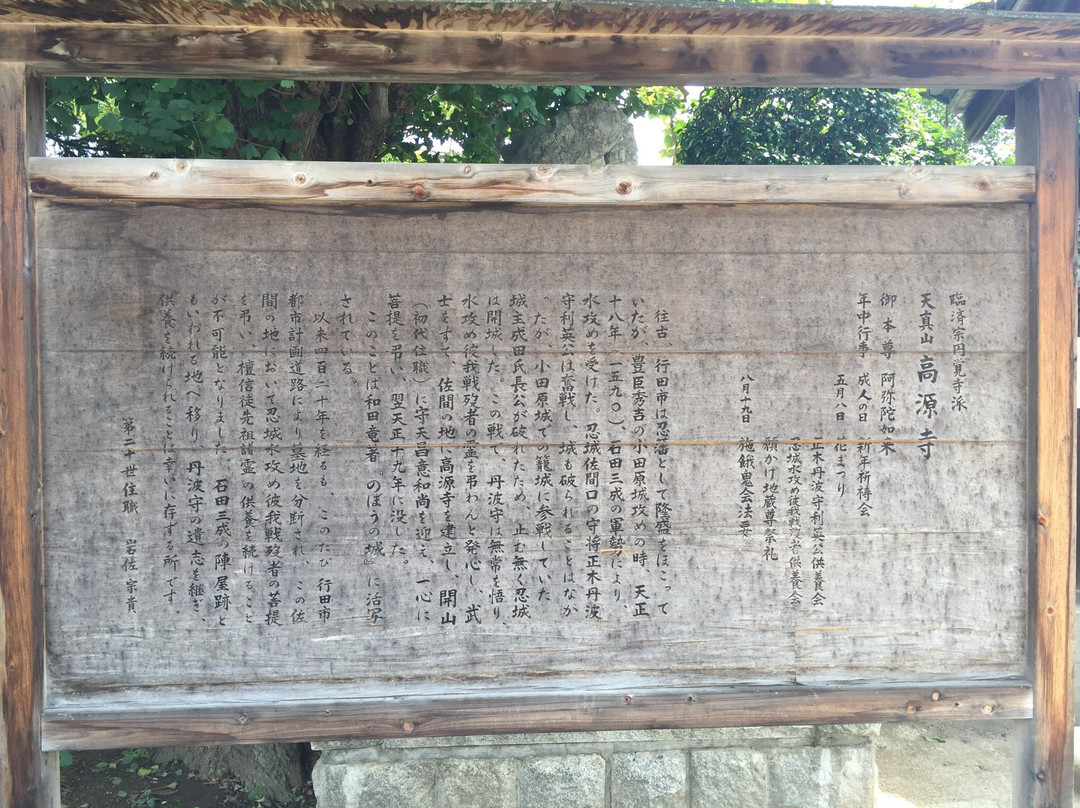 臨済宗円覚寺派
天真山 高源寺
御本尊 阿弥陀如来
年中行事 成人の日 新年祈祷会
五月八日 花まつり
正木丹波守利英公供養会
忍城水攻め彼我戦歿者供養会
願かけ地蔵尊祭礼
八月十九日 施餓鬼会法要
往古、行田市は忍藩として隆盛をほこって
いたが、豊臣秀吉の小田原城攻めの時、天正
十八年（一五九〇）、石田三成の軍勢により、
水攻めを受けた。忍城佐間口の守将正木丹波
守利英公は奮戦し、城も破られることはなか
った。だが、小田原城での籠城に参戦していた
城主成田氏長公が破れたため、止む無く忍城
は開城した。この戦で、丹波守は無常を悟り、
水攻め彼我戦歿者の霊を弔わんと発心し、武
士をすて、佐間の地に高源寺を建立し、開山
（初代住職）に守天昌意和尚を迎え、一心に
菩提を弔い、翌天正十九年に没した。
このことは和田竜著『のぼうの城』に活写
されている。
以来四百二十年を経るも、このたび行田市
都市計画道路により墓地を分断され、この佐
間の地において忍城水攻め彼我戦歿者の菩提
を弔い、檀信徒先祖諸霊の供養を続けること
が不可能となりました。石田三成の陣屋跡と
もいわれる地へ移り、丹波守の遺志を継ぎ、
供養を続けられることは幸いに存ずる所です。
第二十世住職 岩佐宗貴